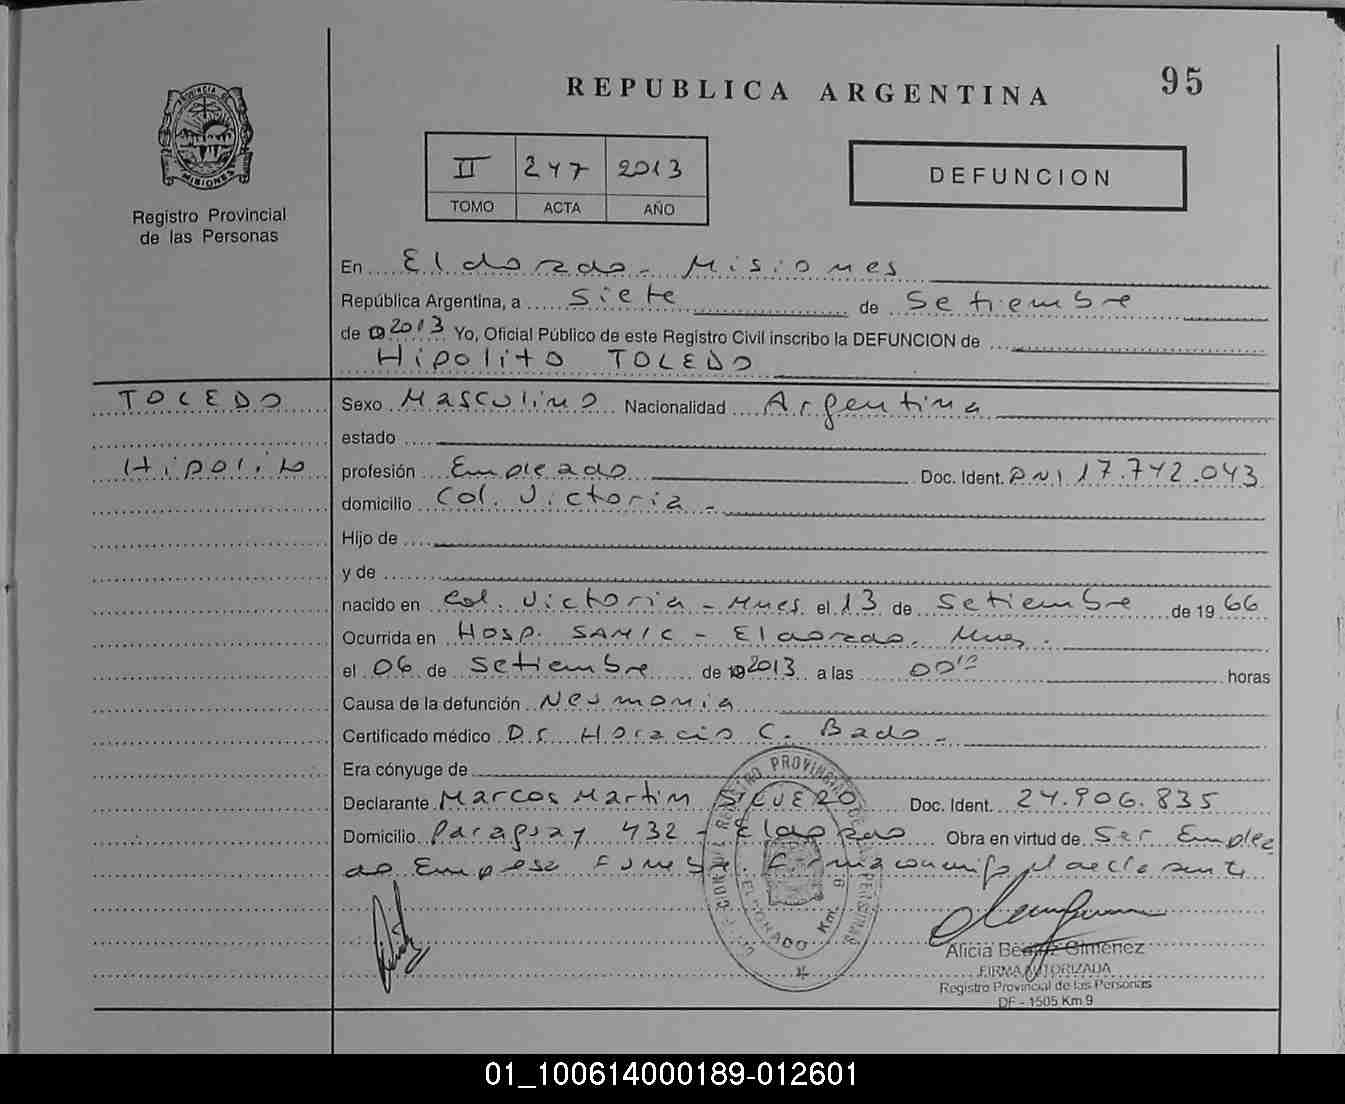 95
REPUBLICA ARGENTINA
PROVINCIA DE
MISIONES
Registro Provincial
de las Personas
II 247 2013
TOMO ACTA AÑO
DEFUNCION
En Eldorado - Misiones
República Argentina, a Siete de Setiembre
de 2013 Yo, Oficial Público de este Registro Civil inscribo la DEFUNCION de
Hipolito TOLEDO
TOLEDO
Hipolito
Sexo Masculino Nacionalidad Argentina
estado
profesión Empleado Doc. Ident. DNI 17.742.043
domicilio Col. Victoria -
Hijo de
y de
nacido en Col. Victoria - Mnes el 13 de Setiembre de 1966
Ocurrida en Hosp. SAMIC - Eldorado. Mnes.
el 06 de Setiembre de 2013 a las 00 horas
Causa de la defunción Neumonia
Certificado médico Dr Horacio C. Bado -
Era cónyuge de
Declarante Marcos Martin Doc. Ident. 24.906.835
Domicilio Paraguay 432 - Eldorado Obra en virtud de Ser Emplea
do Empresa Funebre. Firma conmigo el declarante
ELDORADO Km.
Alicia Beatriz Gimenez
FIRMA AUTORIZADA
Registro Provincial de las Personas
DF - 1505 Km 9
01_100614000189-012601